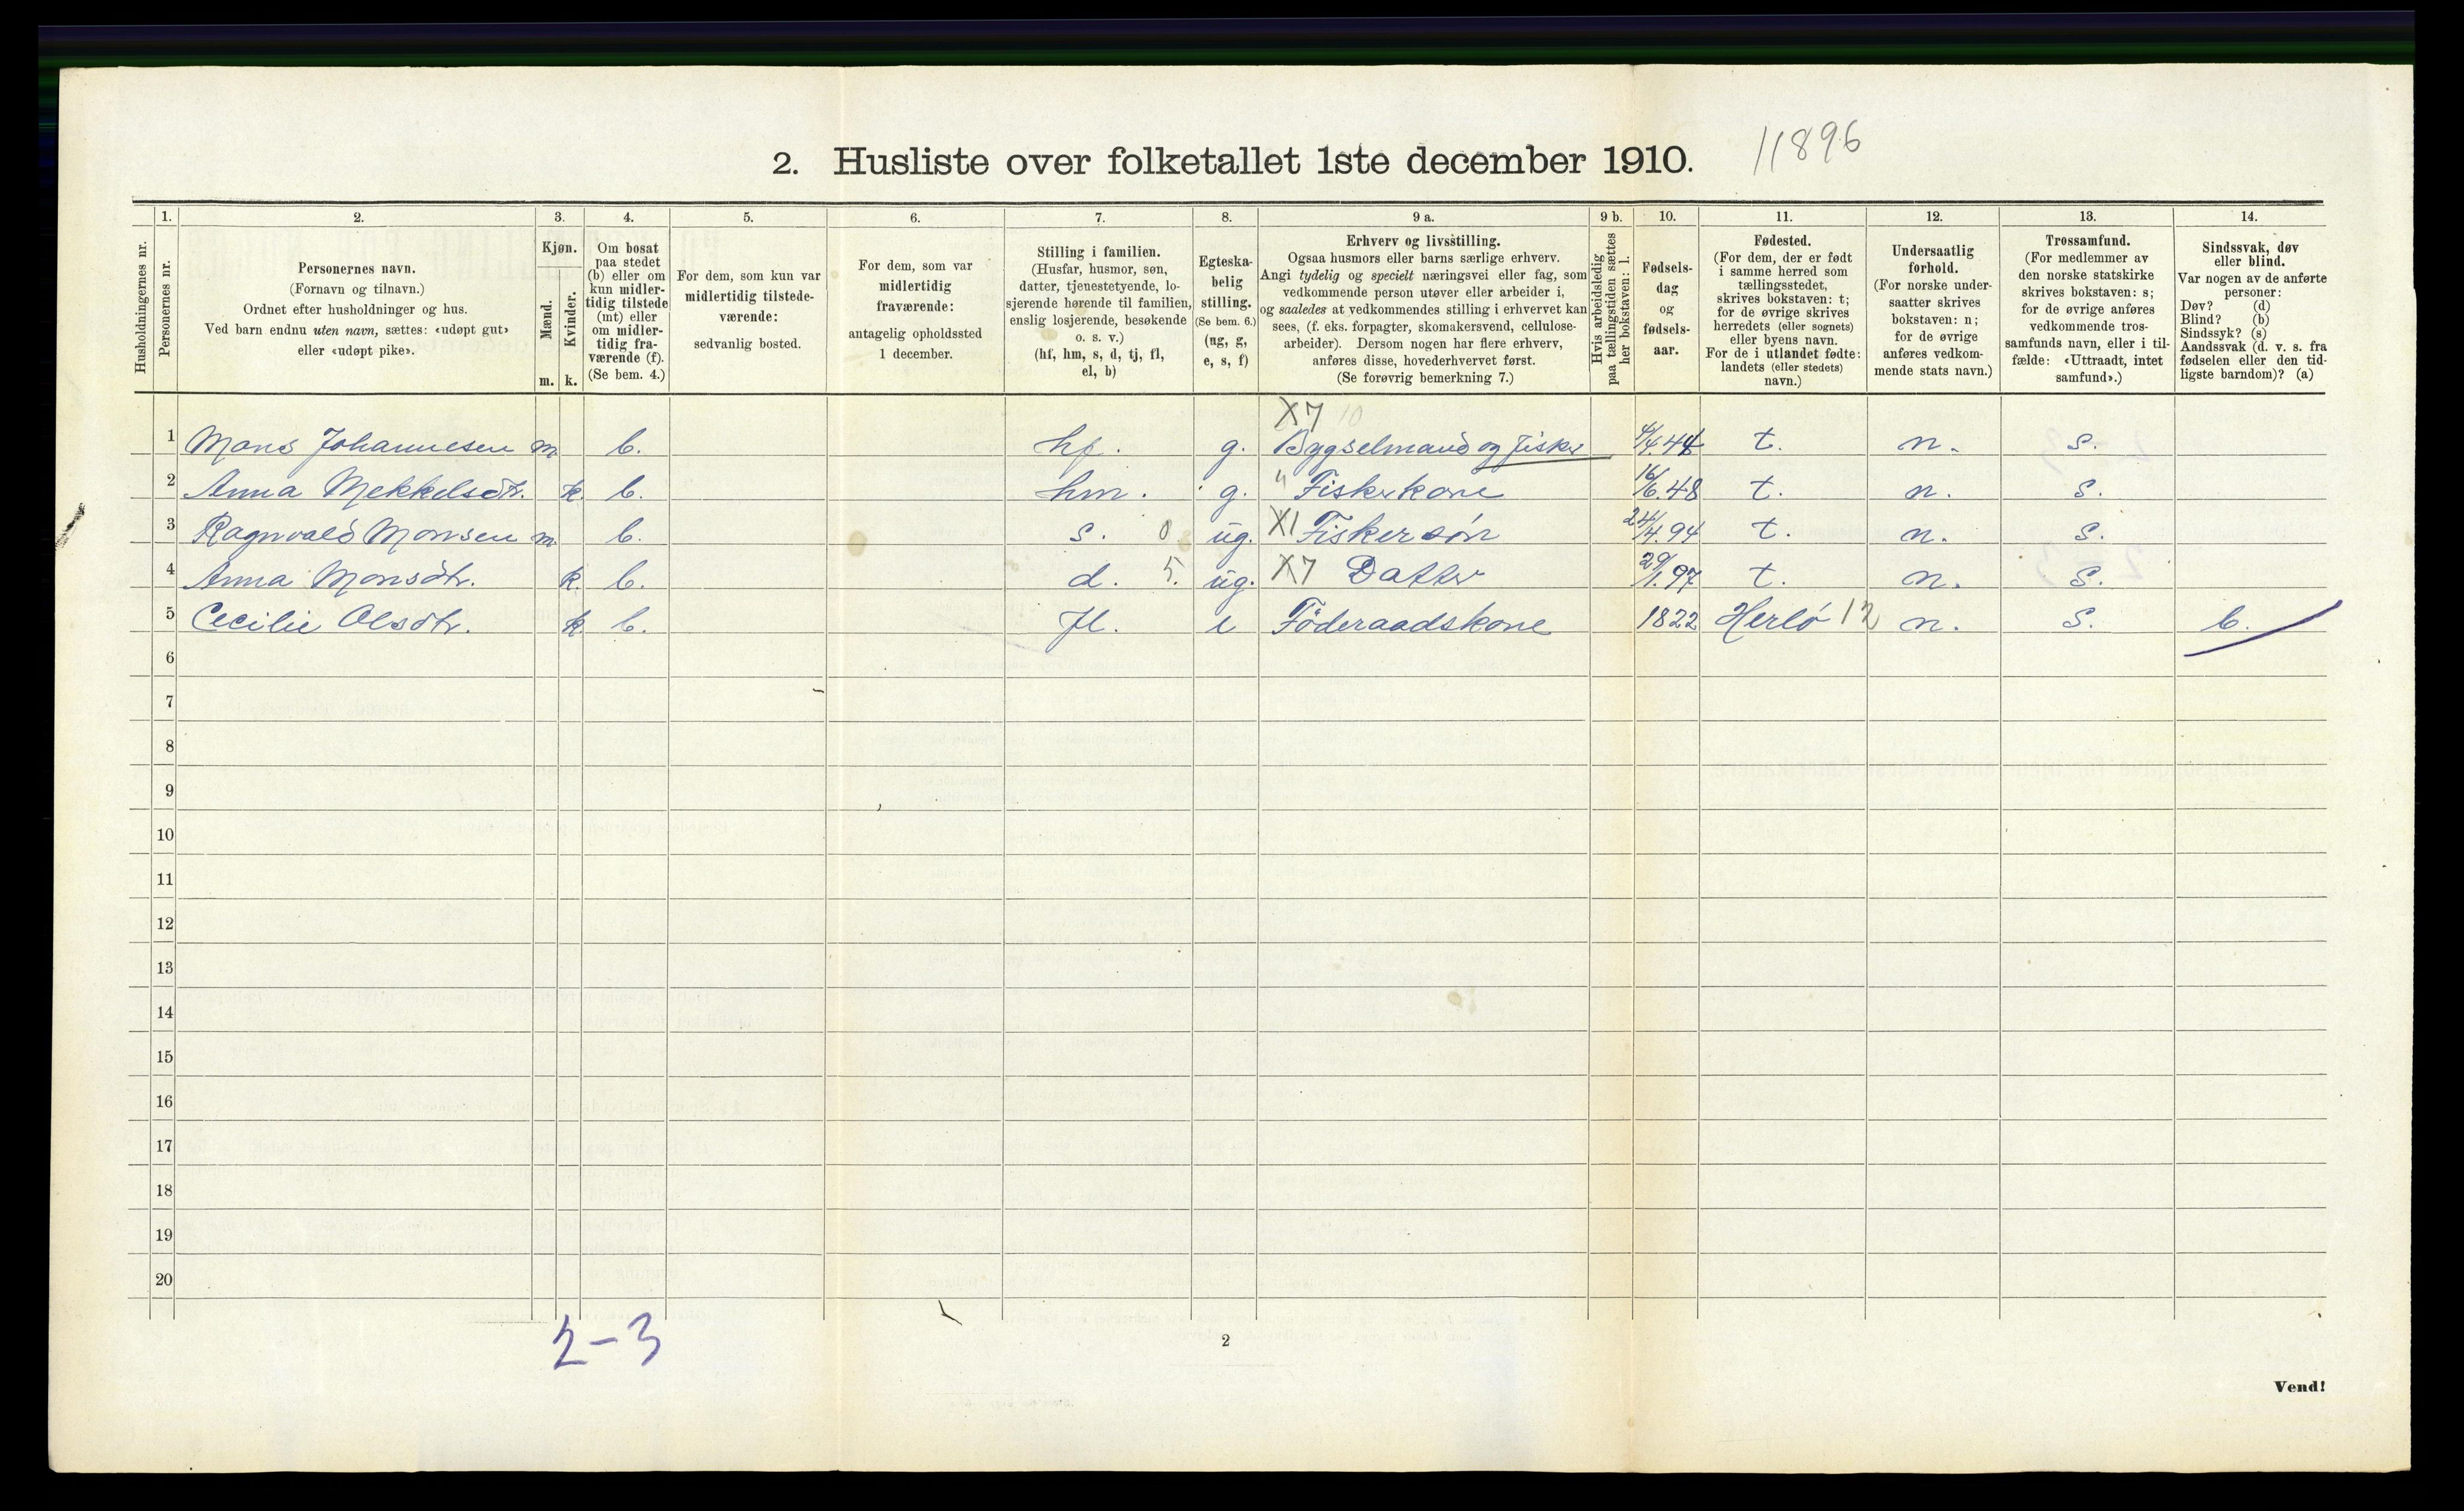 11896
2. Husliste over folketallet 1ste december 1910.
Husholdningernes nr.
1. Personernes nr.
2. Personernes navn. (Fornavn og tilnavn.) Ordnet efter husholdninger og hus. Ved barn endnu uten navn, sættes: «udøpt gut» eller «udøpt pike».
3. Kjøn. Mænd. m. Kvinder. k.
4. Om bosat paa stedet (b) eller om kun midlertidig tilstede (mt) eller om midlertidig fraværende (f). (Se bem. 4.)
5. For dem, som kun var midlertidig tilstedeværende: sedvanlig bosted.
6. For dem, som var midlertidig fraværende: antagelig opholdssted 1 december.
7. Stilling i familien. (Husfar, husmor, søn, datter, tjenestetyende, losjerende hørende til familien, enslig losjerende, besøkende o. s. v.) (hf, hm, s, d, tj, fl, el, b)
8. Egteskabelig stilling. (Se bem. 6.) (ug, g, e, s, f)
9 a. Erhverv og livsstilling. Ogsaa husmors eller barns særlige erhverv. Angi tydelig og specielt næringsvei eller fag, som vedkommende person utøver eller arbeider i, og saaledes at vedkommendes stilling i erhvervet kan sees, (f. eks. forpagter, skomakersvend, cellulosearbeider). Dersom nogen har flere erhverv, anføres disse, hovederhvervet først. (Se forøvrig bemerkning 7.)
9 b. Hvis arbeidsledig paa tællingstiden sættes her bokstaven: l.
10. Fødselsdag og fødselsaar.
11. Fødested. (For dem, der er født i samme herred som tællingsstedet, skrives bokstaven: t; for de øvrige skrives herredets (eller sognets) eller byens navn. For de i utlandet fødte: landets (eller stedets) navn.)
12. Undersaatlig forhold. (For norske undersaatter skrives bokstaven: n; for de øvrige anføres vedkommende stats navn.)
13. Trossamfund. (For medlemmer av den norske statskirke skrives bokstaven: s; for de øvrige anføres vedkommende trossamfunds navn, eller i tilfælde: «Uttraadt, intet samfund».)
14. Sindssvak, døv eller blind. Var nogen av de anførte personer: Døv? (d) Blind? (b) Sindssyk? (s) Aandssvak (d. v. s. fra fødselen eller den tidligste barndom)? (a)
X7 10
1 Mons Johannesen m. b. hf. g. Bygselmand og fisker 4/4.44 t. n. s.
2 Anna Mekkelsdtr. k b. hm. g. " Fiskerkone 16/6.48 t. n. s.
3 Ragnvald Monsen m. b. s. 0 ug. X1 Fiskersön 24/4.94 t. n. s.
4 Anna Monsdtr. k. b. d. 5. ug. X7 Datter 29/1.97 t. n. s.
5 Cecilie Olsdtr. k. b. fl. e Föderaadskone 1822 Herlö 12 n. s. b.
6
7
8
9
10
11
12
13
14
15
16
17
18
19
20
2-3
2
Vend!